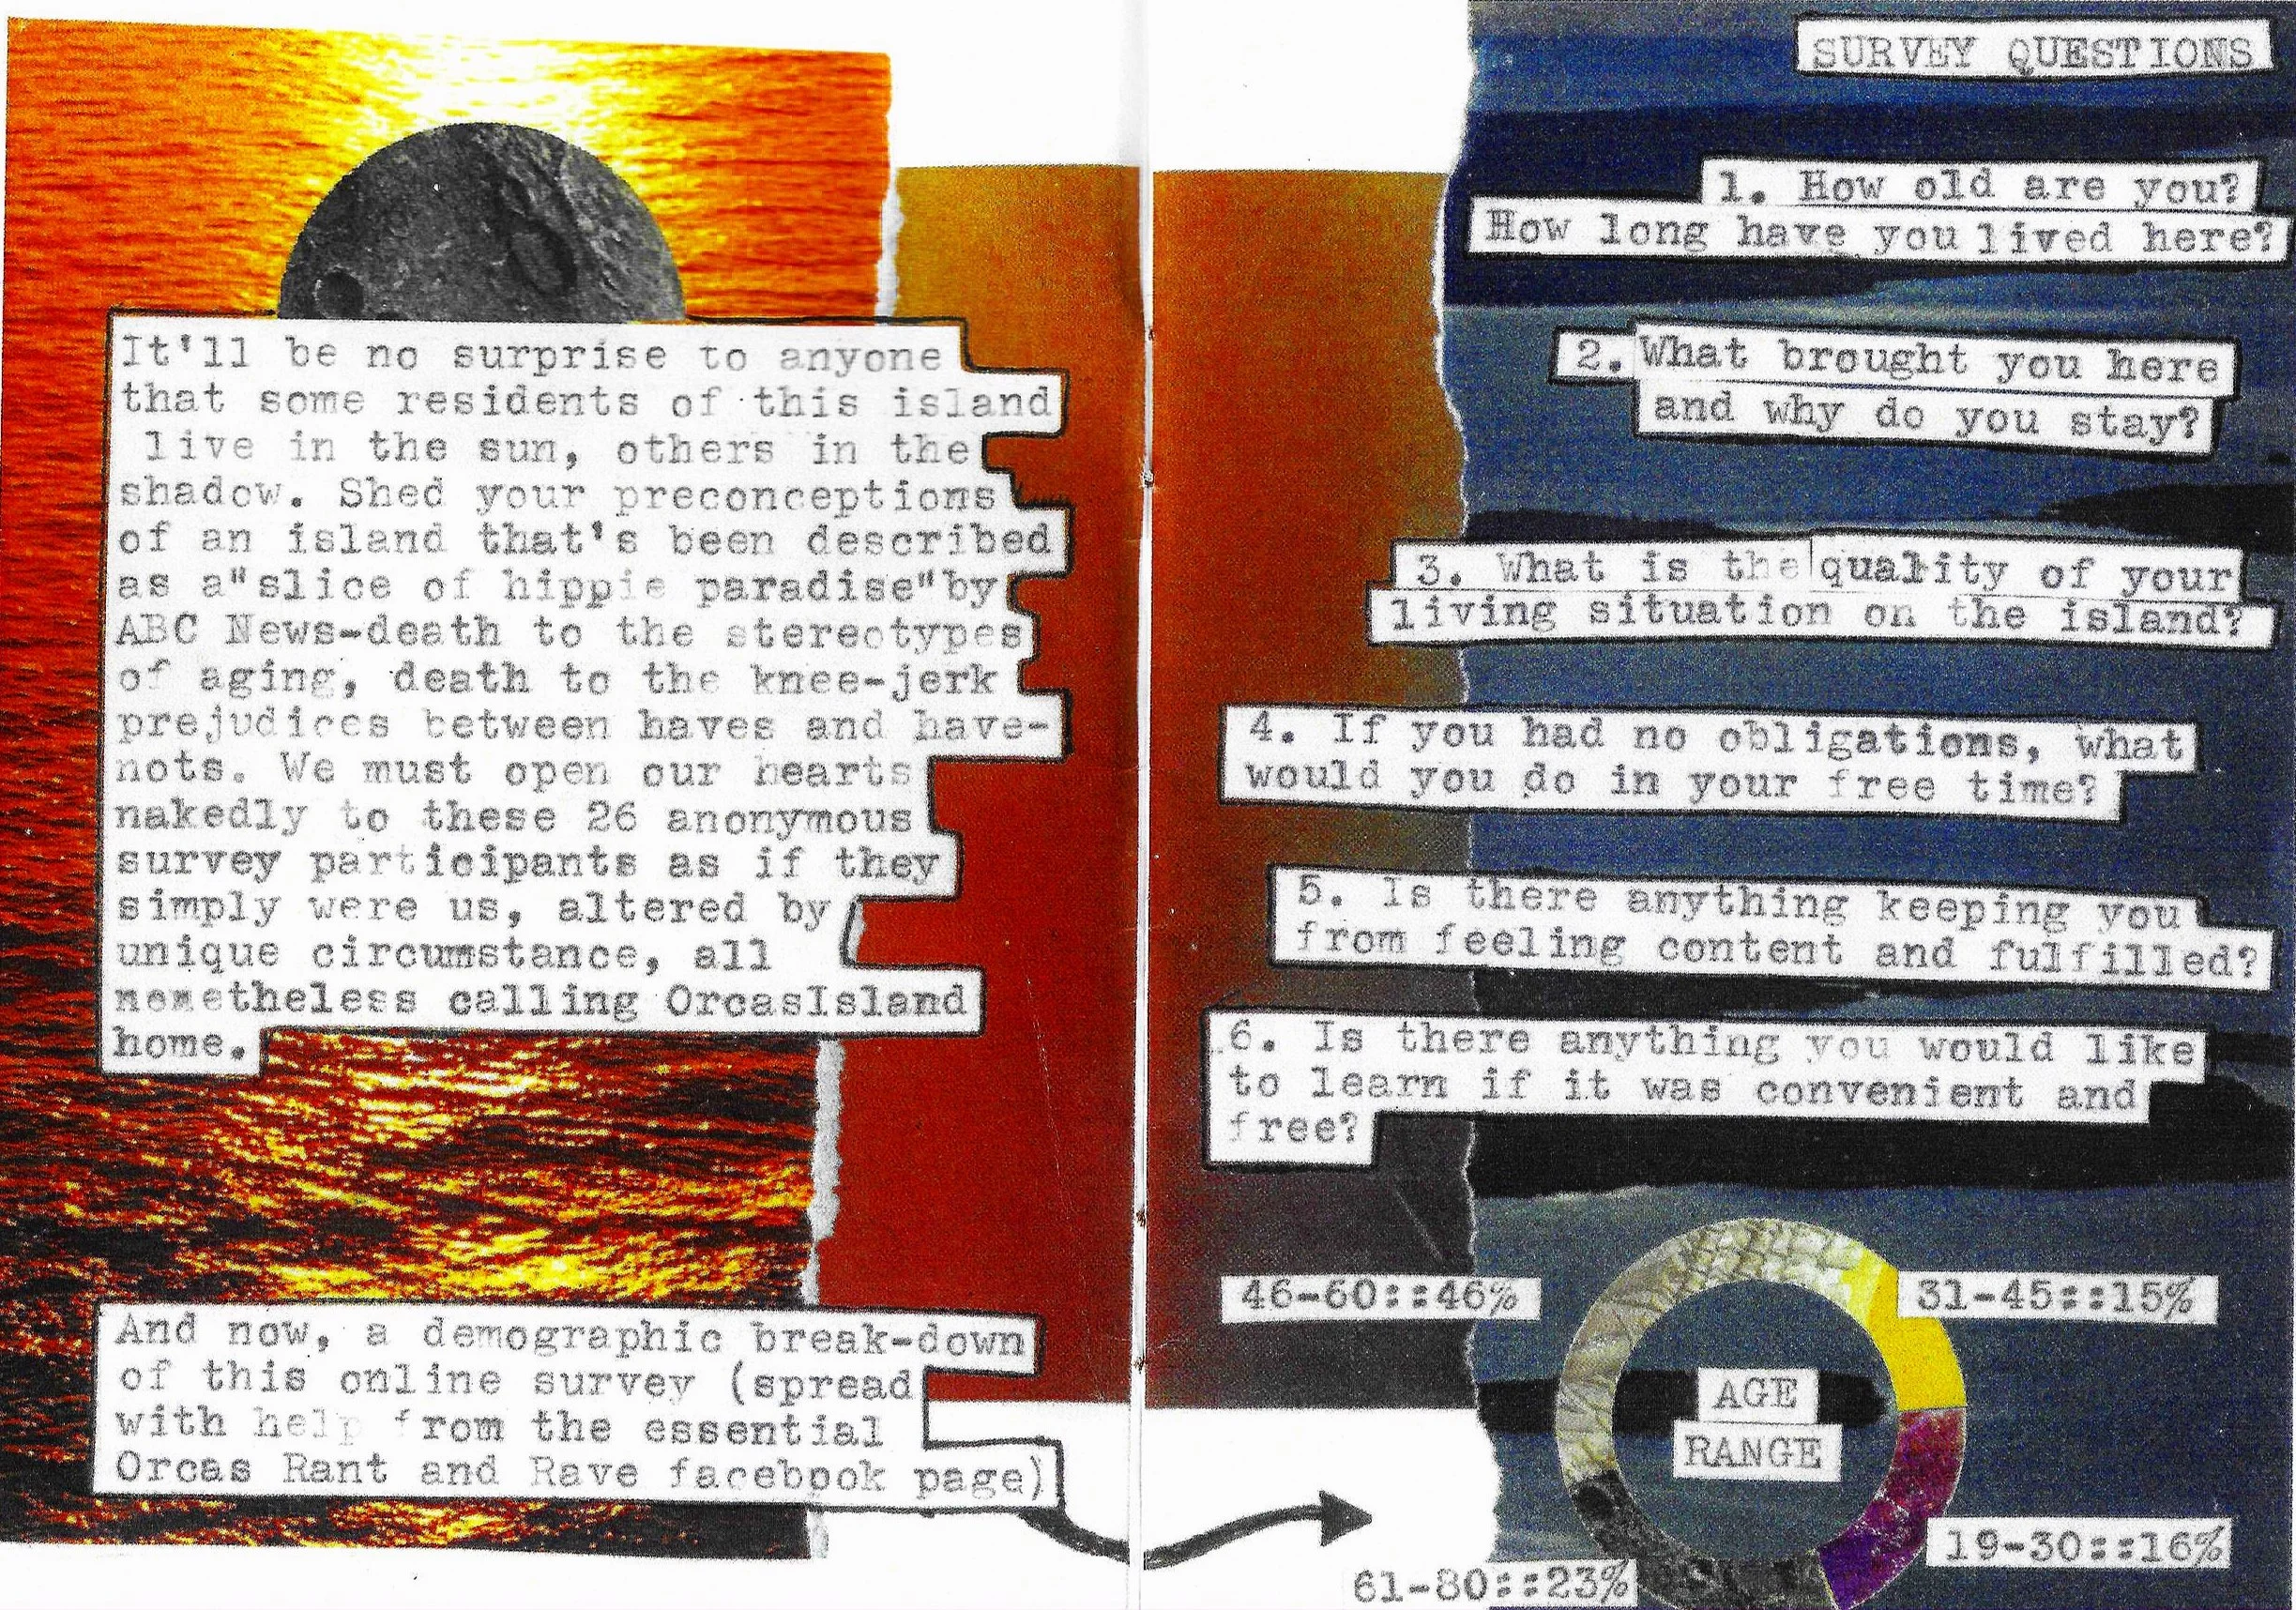 It'll be no surprise to anyone
that some residents of this island
live in the sun, others in the
shadow. Shed your preconceptions
of an island that's been described
as a"slice of hippie paradise"by
ABC News-death to the stereotypes
of aging, death to the knee-jerk
prejudices between haves and have-
nots. We must open our hearts
nakedly to these 26 anonymous
survey participants as if they
simply were us, altered by
unique circumstance, all
nonetheless calling OrcasIsland
home.
And now, a demographic break-down
of this online survey (spread
with help from the essential
Orcas Rant and Rave facebook page)
SURVEY QUESTIONS
1. How old are you?
How long have you lived here?
2. What brought you here
and why do you stay?
3. What is the quality of your
living situation on the island?
4. If you had no obligations, what
would you do in your free time?
5. Is there anything keeping you
from feeling content and fulfilled?
6. Is there anything you would like
to learn if it was convenient and
free?
46-60::46%
31-45::15%
AGE
RANGE
19-30::16%
61-80::23%